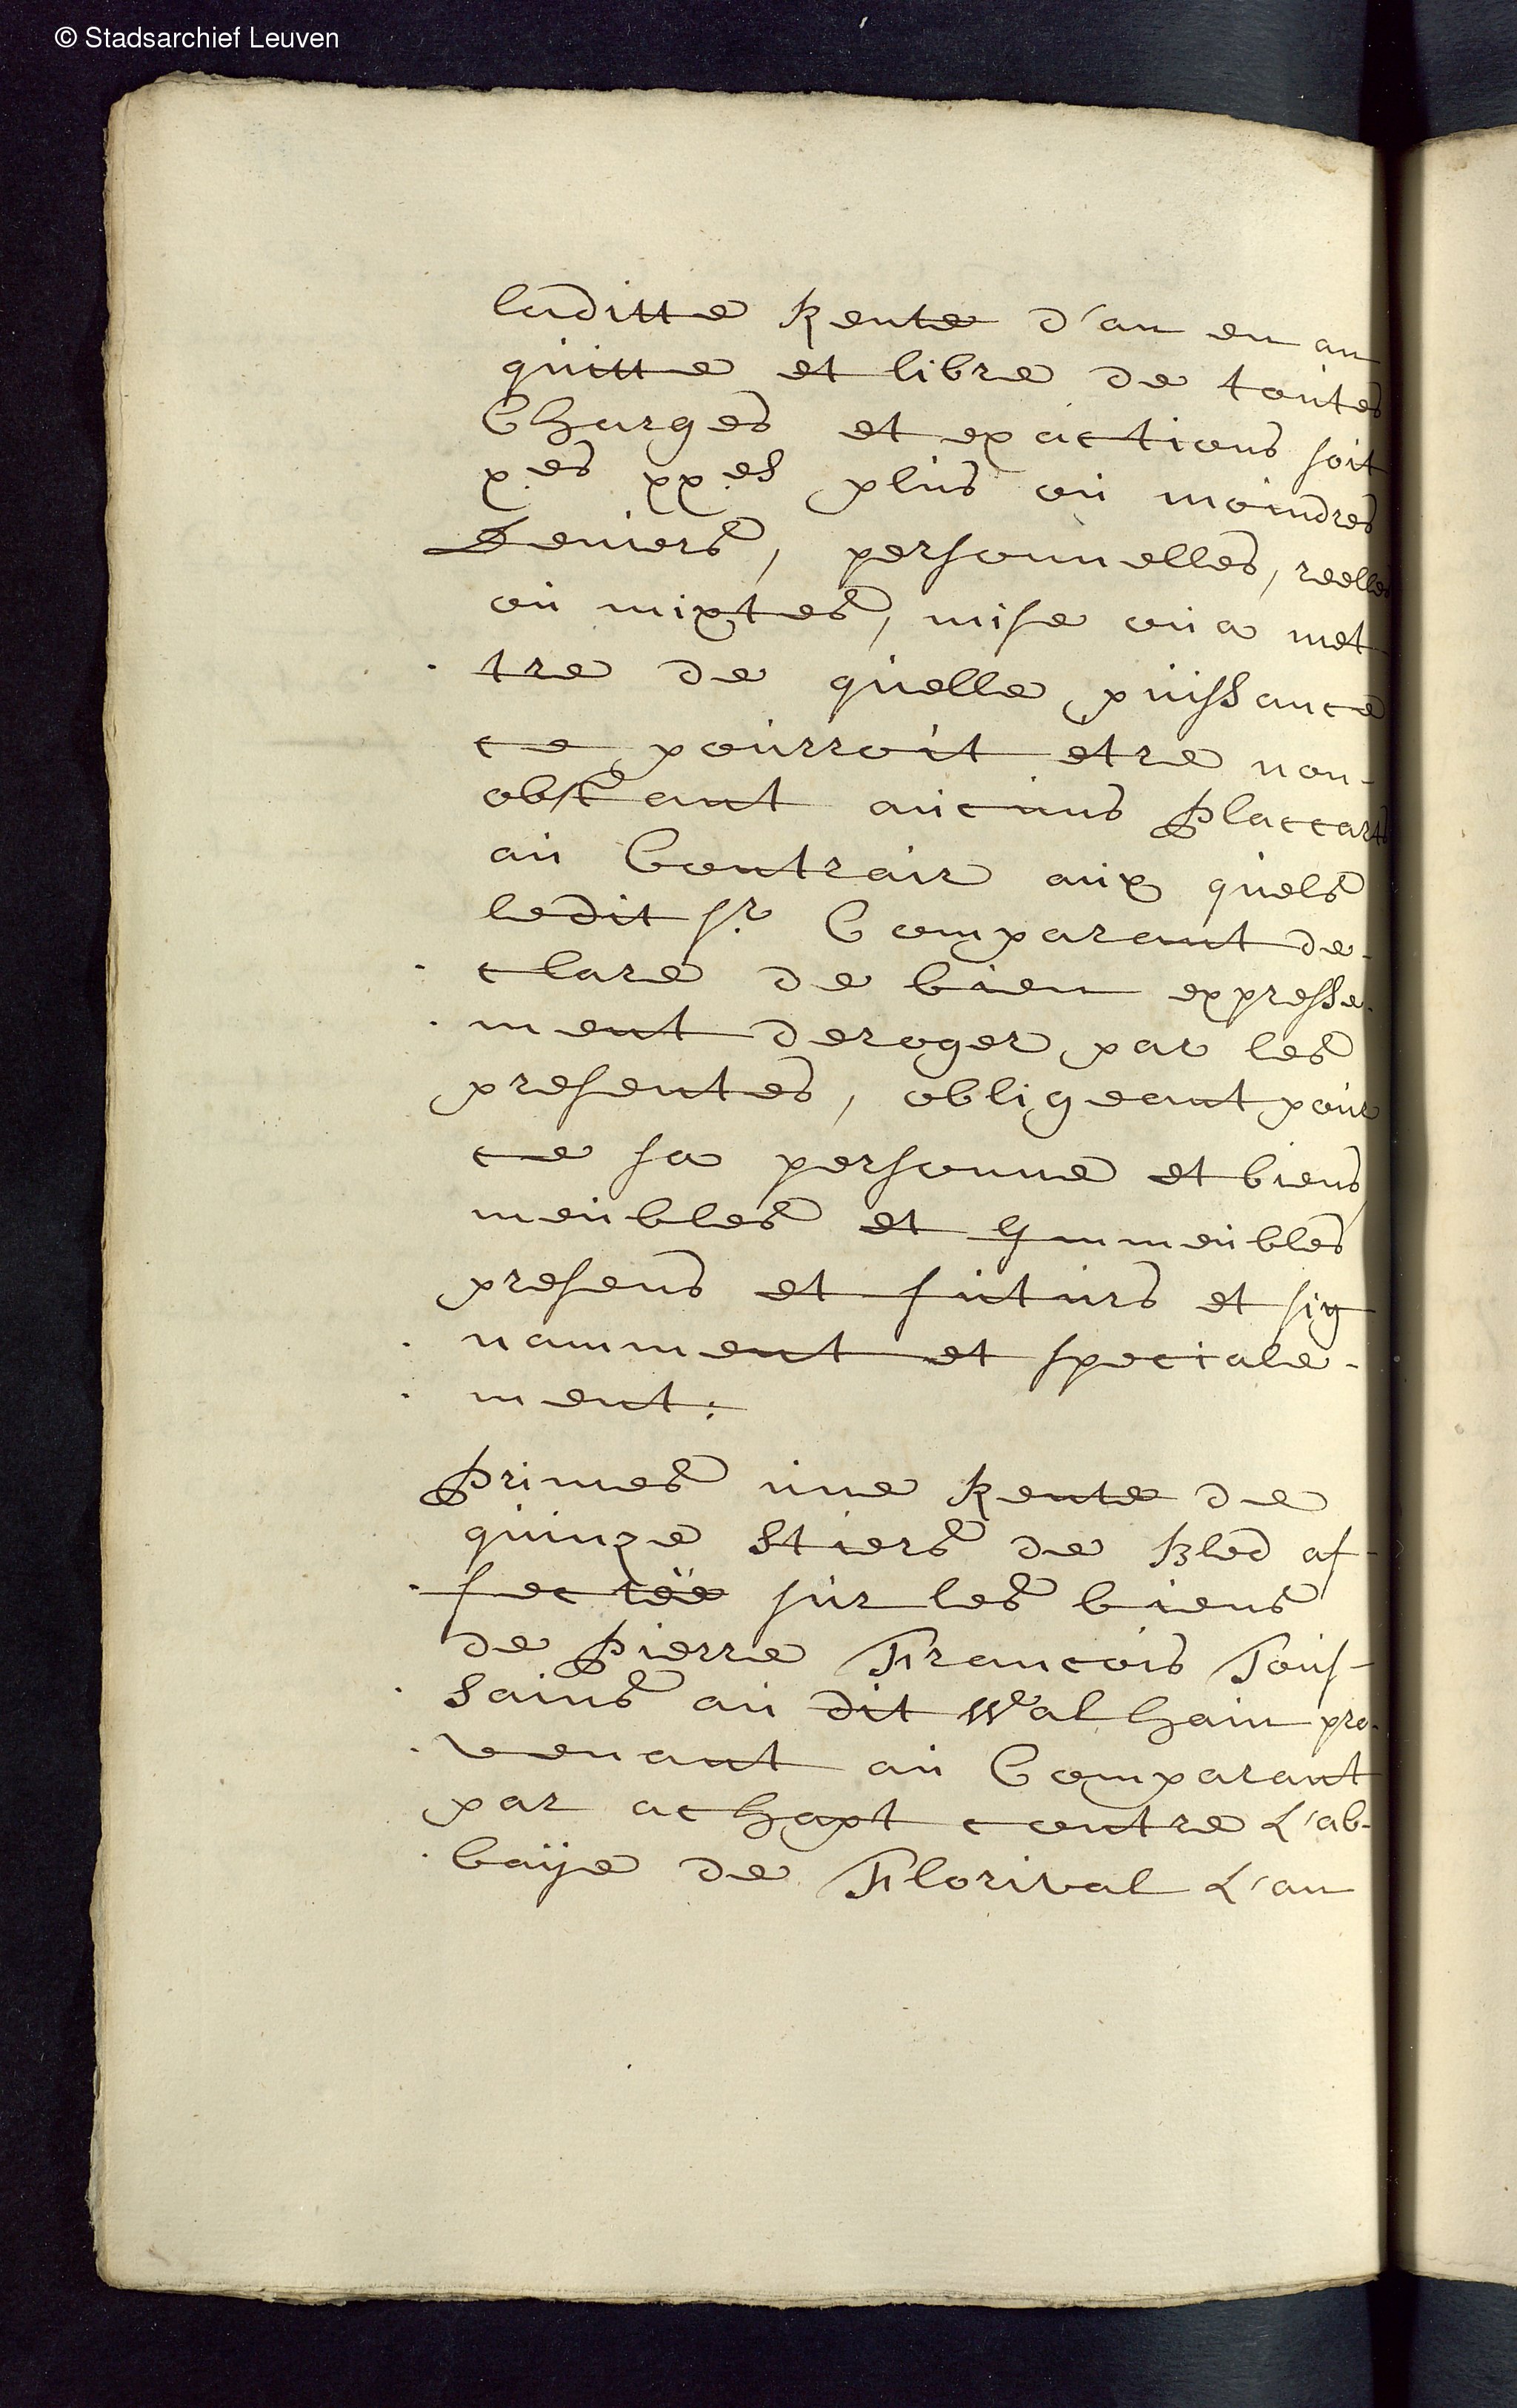 © Stadsarchief Leuven
laditte Rente d'an en an
quitte et libre de toutes
Charges et exactions soit
x.es xx.es plus ou moindres
Deniers, personnelles, reelles
ou mixtes, mise ou a met-
tre de quelle puissance
ce pourroit etre non-
obstant aucuns Placcarts
au Contrair aux quels
ledit sr. Comparant de-
clare de bien expresse-
ment deroger par les
presentes, obligeant pour
ce sa personne et biens
meubles et Immeubles
presens et futurs et sig
namment et speciale-
ment:
Primes une Rente de
quinze Stiers de Bled af-
fectéë sur les biens
de Pierre Francois Tous-
Sains au dit Walhain pro-
venant au Comparant
par achapt contre L'ab-
baÿe de Florival L'an